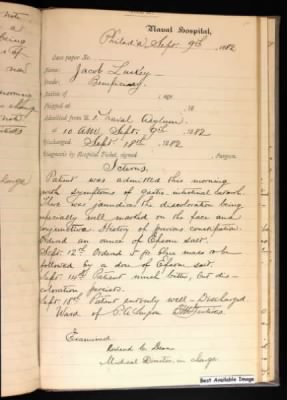 Naval Hospital,
Philad'a Sept. 9th, 1882
Case paper No.
Name: Jacob Laskey
Grade: Beneficiary
Native of , age
Shipped at , 18
Admitted from U.S. Naval Asylum
at 10 A.M. Sept. 9th, 1882
Discharged Sept. 18th, 1882
Diagnosis by Hospital Ticket, signed , Surgeon.
Icterus.
Patient was admitted this morning
with symptoms of gastro-intestinal
There was jaundice the discoloration being
especially well marked on the face and
conjunctiva. History of previous constipation.
Ordered an ounce of Epsom salt.
Sept. 12th Ordered x gr blue mass to be
followed by a dose of Epsom salt.
Sept. 14th Patient much better, but dis-
coloration persists.
Sept. 18th Patient entirely well - Discharged
Ward of P.A. Surgeon
Examined
C. Dean
Medical Director in charge
Best Available Image